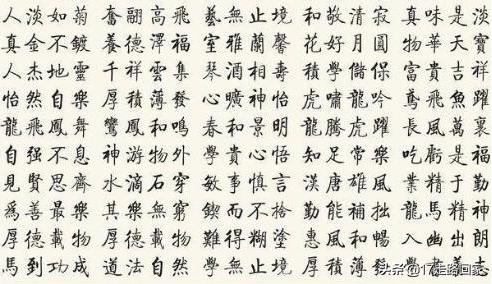 人淡如菊 奮翮高飛 藝無止境 和敬清寂 真味是淡
真金不鍍 養德澤福 室雅蘭馨 花好月圓 物華天寶
人杰地靈 千祥雲集 琴酒相壽 積學儲保 富貴吉祥
怡然自樂 厚積薄發 心曠神怡 虎嘯龍吟 鳶飛魚躍
龍飛鳳舞 鸞鳳和鳴 春和景明 龍騰虎躍 長風萬裏
自强不息 神游物外 學貴心悟 知足常樂 吃虧是福
見賢思齊 水滴石穿 敏事慎言 漢唐雄風 業精于勤
爲善最樂 其樂無窮 鍥而不捨 勤能補拙 龍馬精神
厚德載物 厚德載物 難得糊塗 惠風和暢 入幽出朗
馬到功成 道法自然 學無止境 厚積薄發
头条 @17走路回家